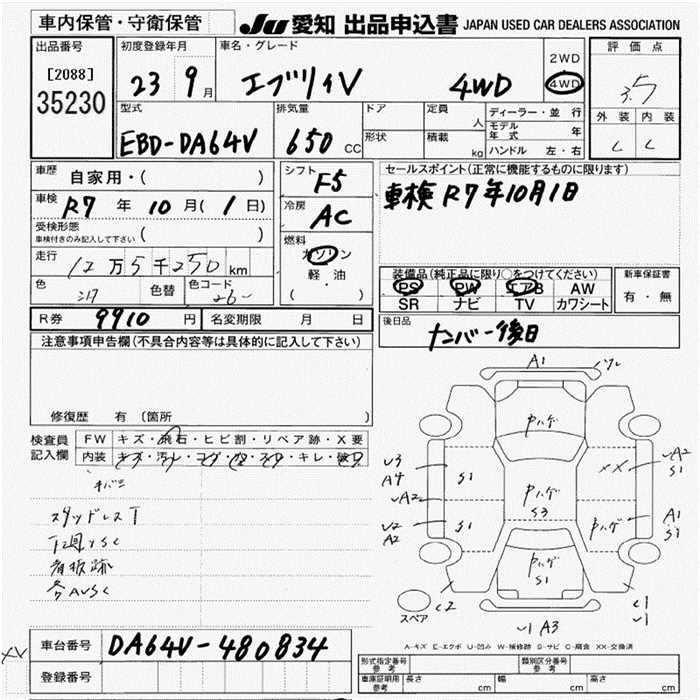 車内保管・守衛保管
JU 愛知 出品申込書 JAPAN USED CAR DEALERS ASSOCIATION
出品番号
[2088]
35230
初度登録年月
23 9月
車名・グレード
エブリイV 4WD
2WD
4WD
評価点
3.5
外装 内装
C C
型式
EBD-DA64V
排気量
650 CC
ドア
形状
定員 人
積載 kg
ディーラー・並行
モデル年式 年
ハンドル 左・右
車歴 自家用・( )
車検 R7 年 10 月( 1 日)
受検形態
車検付きのみ記入して下さい ( )
走行
12万5千250km
色 色替 色コード
26-
シフト F5
冷房 AC
燃料
ガソリン
軽・油
( )
セールスポイント(正常に機能するものに限ります)
車検R7年10月1日
装備品(純正品に限り○をつけてください)
PS PW エアB AW
SR ナビ TV カワシート
新車保証書
有・無
R券 9910 円 名変期限 月 日
後日品
ナンバー後日
注意事項申告欄(不具合内容等は具体的に記入して下さい)
修復歴 有(箇所 )
検査員記入欄
FW キズ・飛石・ヒビ割・リペア跡・X要
内装 キズ・汚レ・コゲ・穴・スレ・キレ・破レ
スタッドレスT
下廻りSC
看板跡
各AUSC
A1
Pハゲ
U3
A4
S1
UA2
U2
A2
S1
Pハゲ
S3
XX
UA2
S1
Pハゲ
A1
S1
Pハゲ
S1
スペア
C2
C1
U1
U1 A3
A-キズ E-エクボ U-凹み W-補修跡 S-サビ C-腐食 XX-交換済
車台番号 DA64V-480834
登録番号
XV
形式指定番号 参考
類別区分番号 参考
車庫証明用 参考 長さ cm 幅 cm 高さ cm